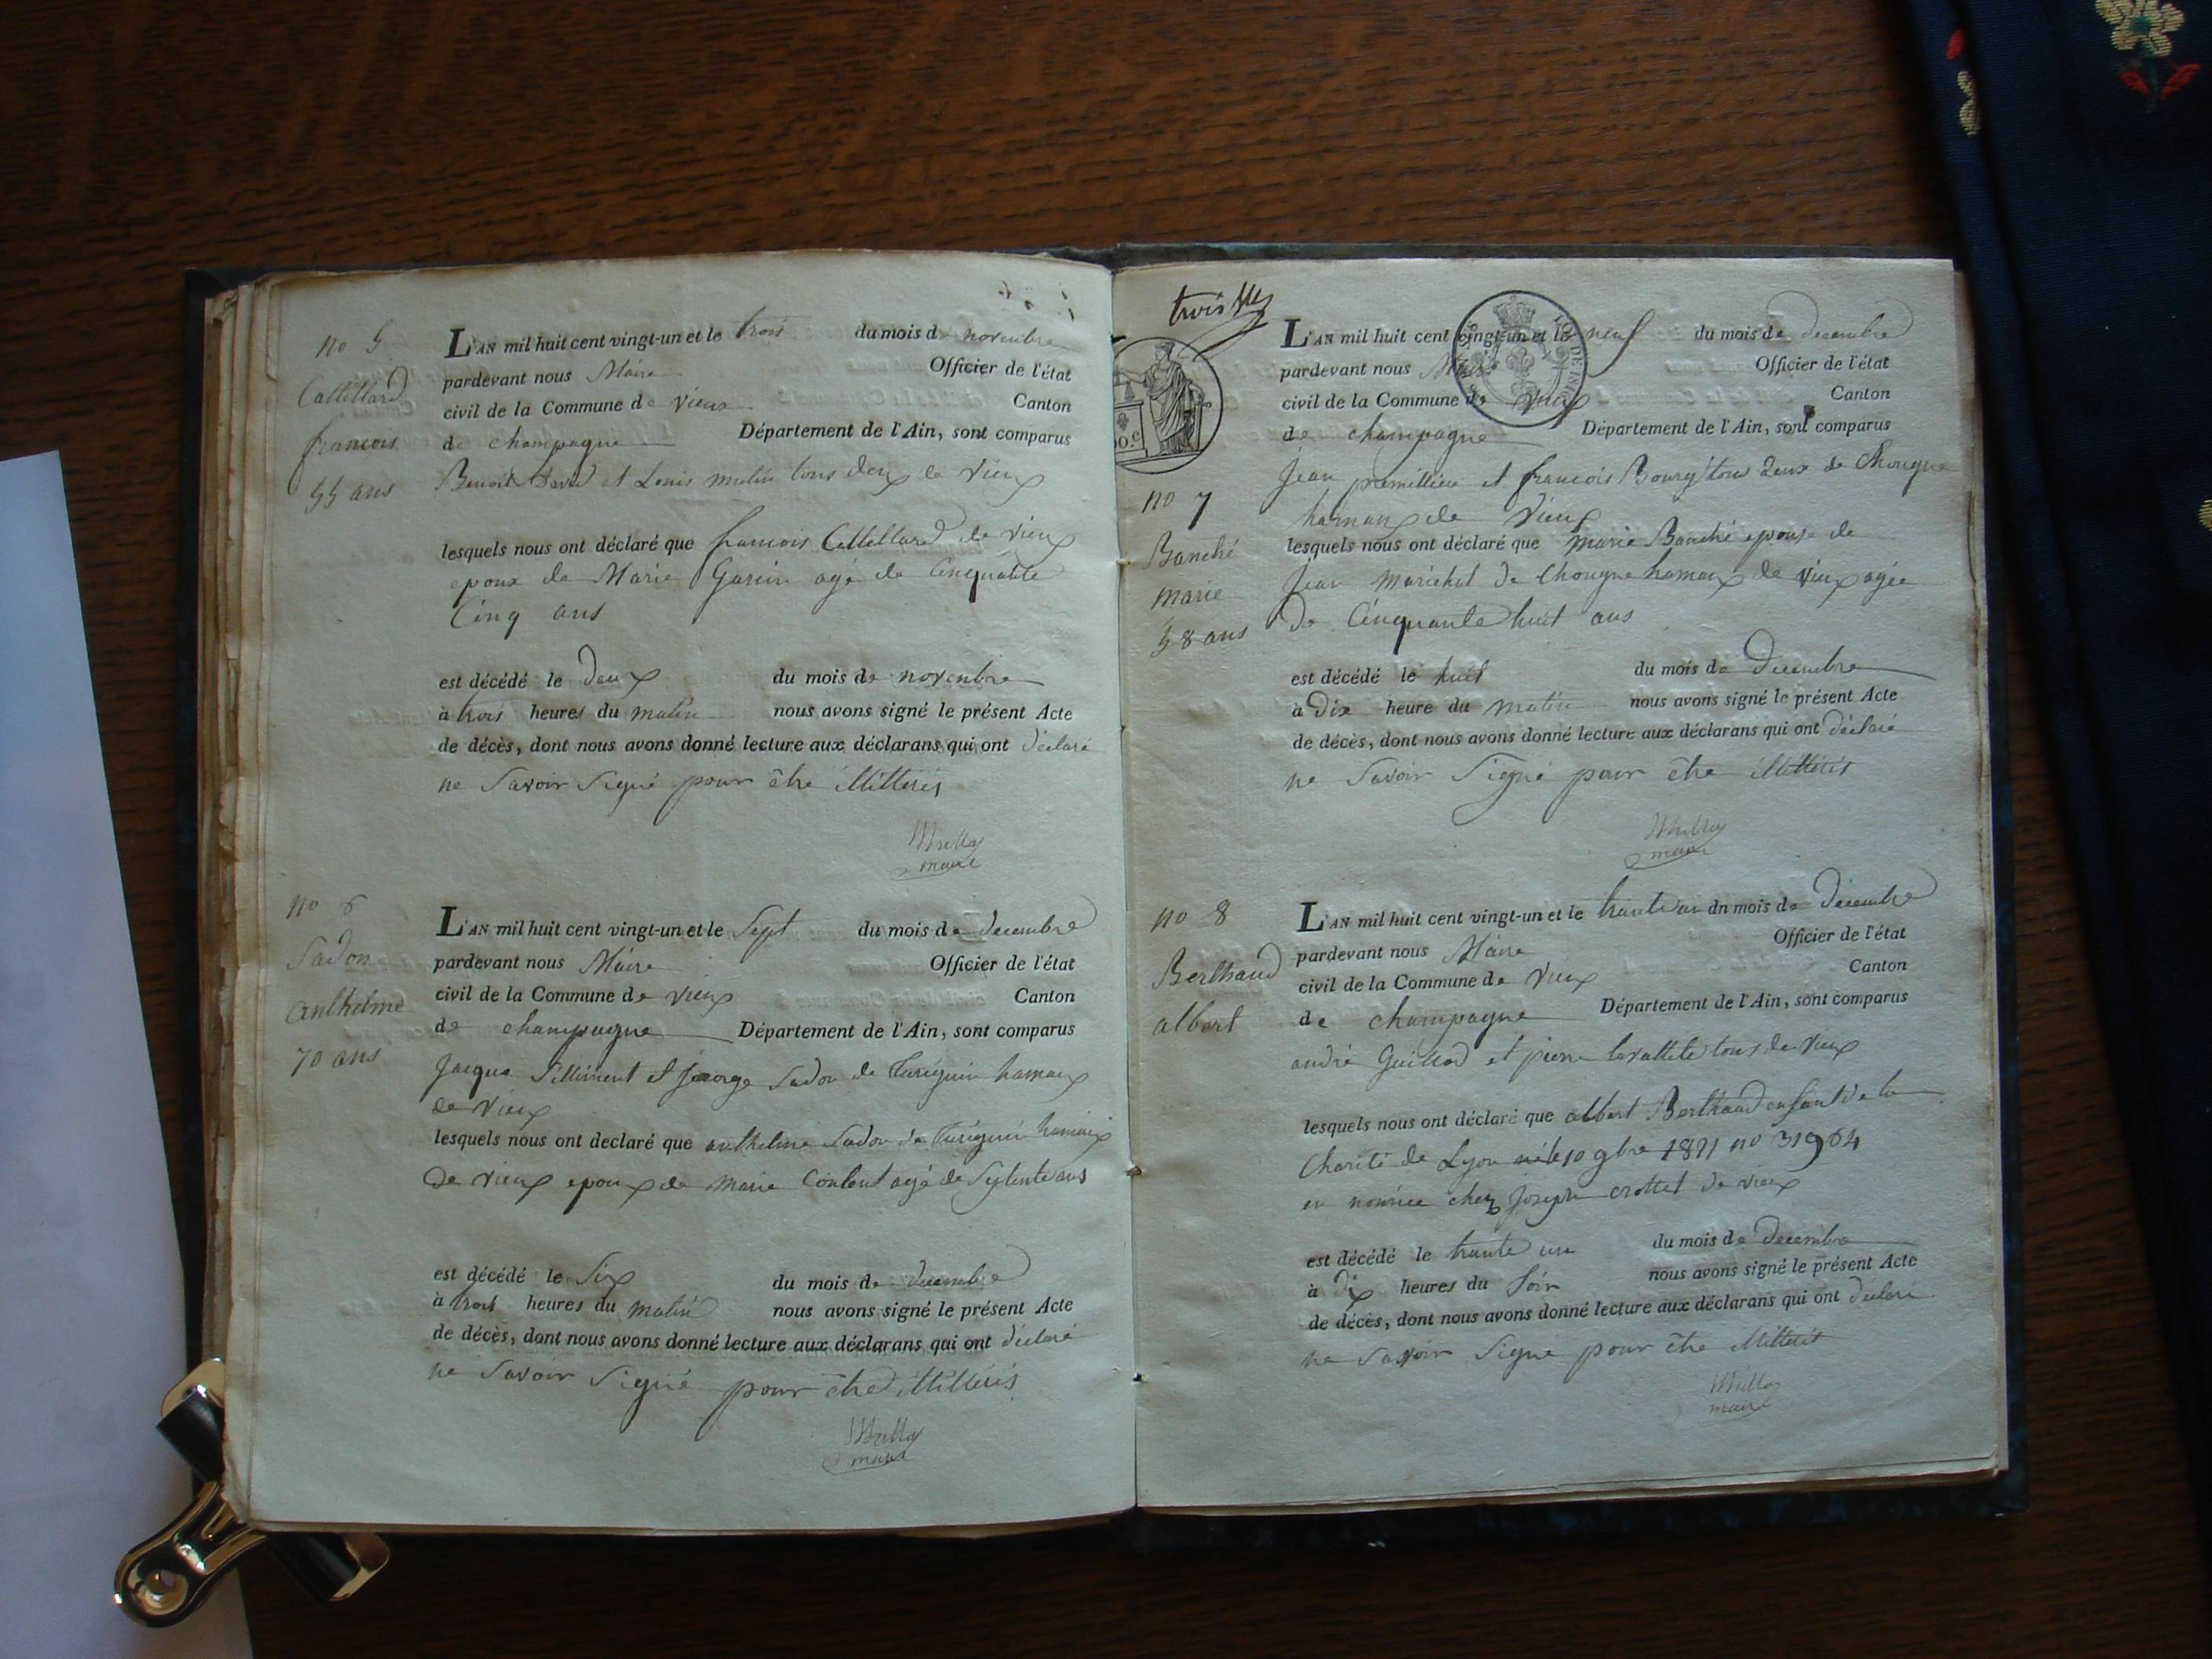 no 5
Cattellard
francois
55 ans
L'AN mil huit cent vingt-un et le trois du mois de novembre
pardevant nous Maire Officier de l'état
civil de la Commune de vieux Canton
de champagne Département de l'Ain, sont comparus
Benoit David et Louis mutin tous deux de vieux
lesquels nous ont déclaré que francois Cattellard de vieux
epoux de Marie Garin agé de Cinquante
Cinq ans
est décédé le deux du mois de novembre
à trois heures du matin nous avons signé le présent Acte
de décès, dont nous avons donné lecture aux déclarans qui ont déclaré
ne Savoir Signé pour être illitterés
maire
no 6
Sadon
anthelme
70 ans
L'AN mil huit cent vingt-un et le Sept du mois de decembre
pardevant nous Maire Officier de l'état
civil de la Commune de vieux Canton
de champagne Département de l'Ain, sont comparus
Jacque et George Sadon de hamaux
de vieux
lesquels nous ont declaré que anthelme Sadon de hamaux
de vieux epoux de marie Content agé de Septente ans
est décédé le Six du mois de decembre
à trois heures du matin nous avons signé le présent Acte
de décès, dont nous avons donné lecture aux déclarans qui ont déclaré
ne Savoir Signé pour être illitterés
maire
trois
no 7
Banché
marie
58 ans
L'AN mil huit cent vingt-un et le neuf du mois de decembre
pardevant nous Maire Officier de l'état
civil de la Commune de vieux Canton
de champagne Département de l'Ain, sont comparus
Jean et francois Bourg tous deux de Chongne
hamaux de vieux
lesquels nous ont déclaré que marie Banché epouse de
Jean Marichal de Chongne hamaux de vieux agée
de Cinquante huit ans
est décédé le huit du mois de Decembre
à Dix heure du matin nous avons signé le présent Acte
de décès, dont nous avons donné lecture aux déclarans qui ont déclaré
ne Savoir Signé pour être illitterés
maire
no 8
Berthaud
albert
L'AN mil huit cent vingt-un et le trante un dn mois de Decembre
pardevant nous Maire Officier de l'état
civil de la Commune de vieux Canton
de champagne Département de l'Ain, sont comparus
andré Guillod et pierre tous de vieux
lesquels nous ont déclaré que albert Berthaud enfant de la
Charité de Lyon né le 10 9bre 1821 no 31964
en nourice chez Joseph crottet de vieux
est décédé le trante un du mois de Decembre
à dix heures du Soir nous avons signé le présent Acte
de décès, dont nous avons donné lecture aux déclarans qui ont declaré
ne Savoir Signe pour être illitterés
maire